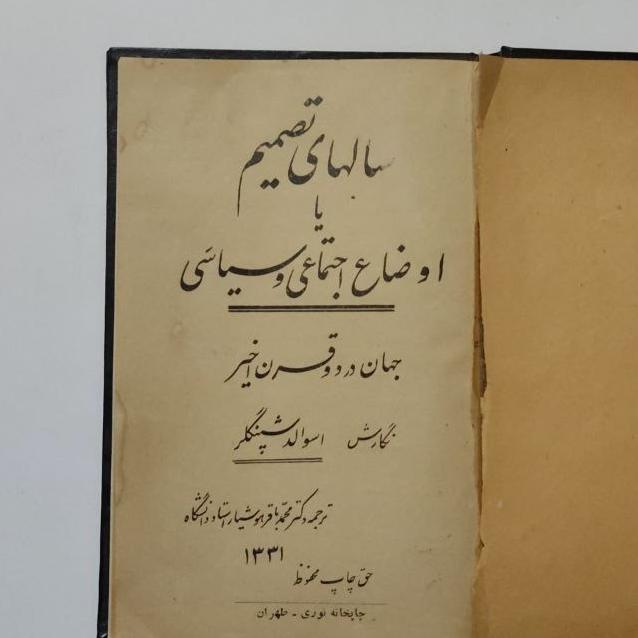 سالهای تصمیم
یا
اوضاع اجتماعی و سیاسی
جهان در دو قرن اخیر
نگارش اسوالد شپنگلر
ترجمه دکتر محمد باقر هوشیار استاد دانشگاه
۱۳۳۱
حق چاپ محفوظ
چاپخانه نوری - طهران